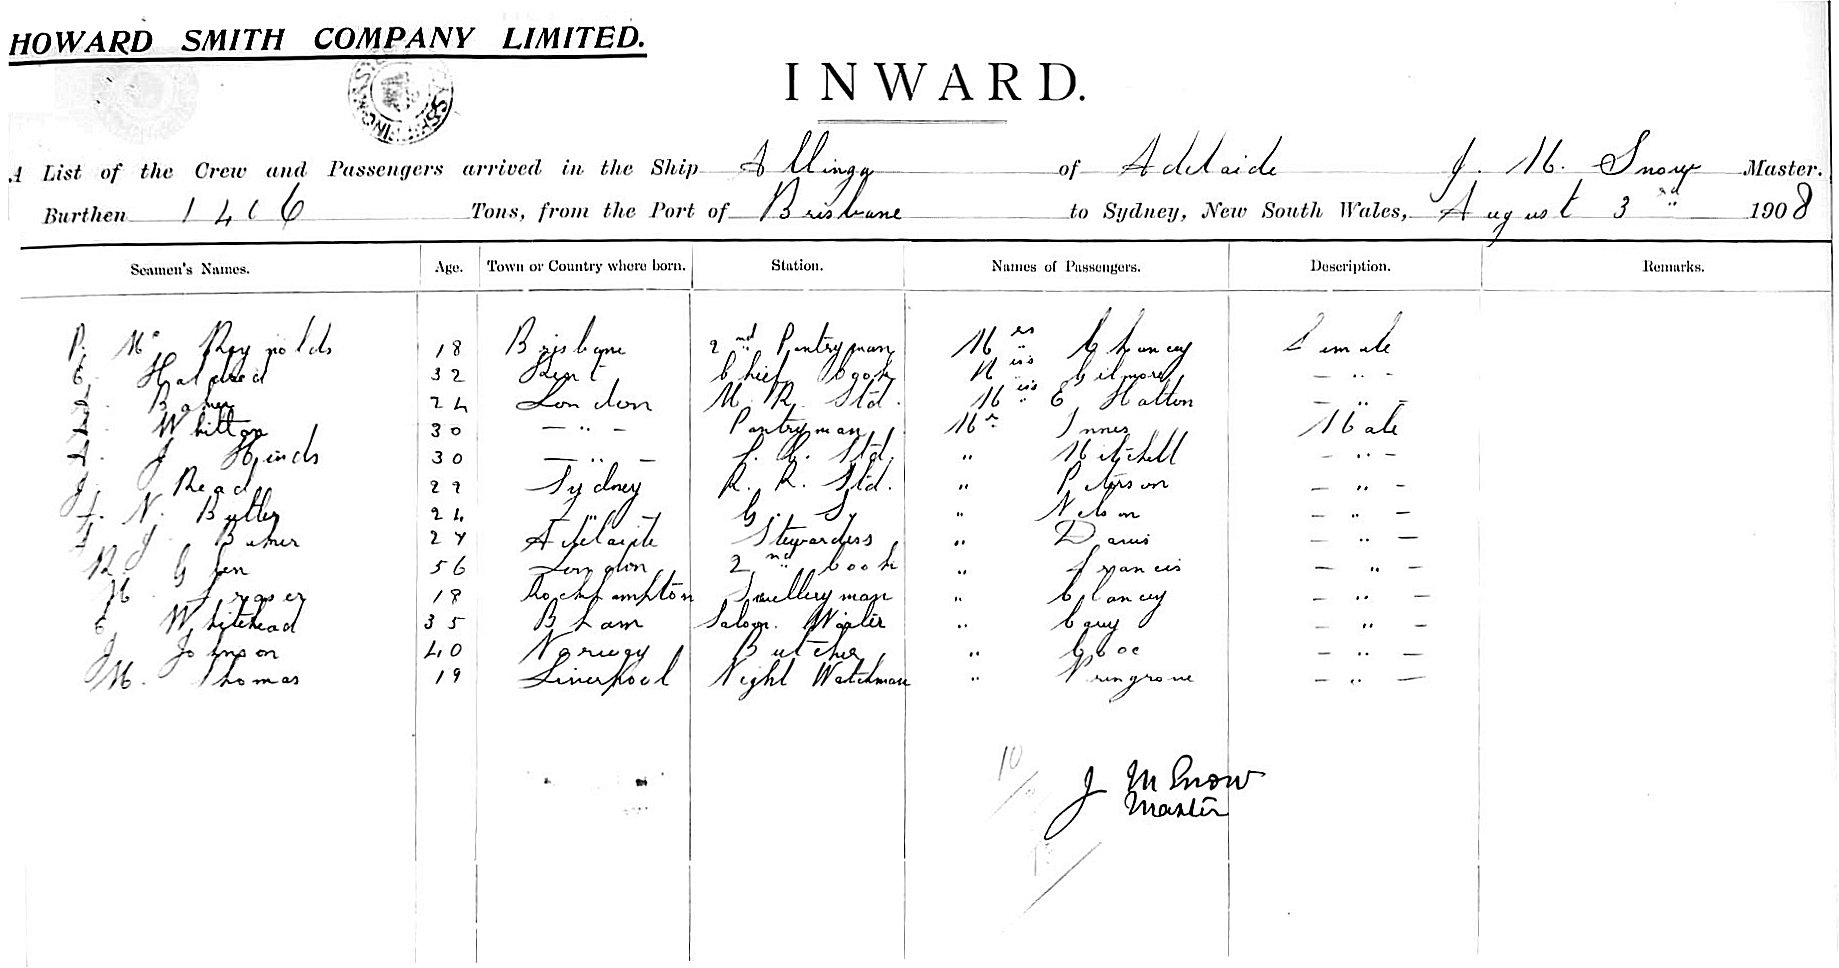 HOWARD SMITH COMPANY LIMITED.
INWARD.
A List of the Crew and Passengers arrived in the Ship Allinga of Adelaide J. M. Snow Master.
Burthen Tons, from the Port of Brisbane to Sydney, New South Wales, August 3rd 1908
Seamen's Names. Age. Town or Country where born. Station. Names of Passengers. Description. Remarks.
P. Mc Reynolds 18 Brisbane 2nd Pantryman Mrs Chancey Female
E. 32 Kent Chief Cook Miss Gilmore — " —
Baker 24 London M. R. Std. Miss E Hatton — " —
Whitton 30 — " — Pantryman Mr Innes Male
J Hinds 30 — " — Std. " Mitchell — " —
J. Read 29 Sydney R. R. Std. " Peterson — " —
N. Butler 24 " G. Sy " Nelson — " —
J. 27 Adelaide Stewardess " Davis — " —
R. Glen 56 London 2nd Cook " Francis — " —
M. Fraser 18 Rockhampton Sculleryman " Clancey — " —
E Whitehead 35 B ham Saloon. Waiter " — " —
J Johnson 40 Norway Butcher " — " —
M. Thomas 19 Liverpool Night Watchman " — " —
10
J M Snow
Master